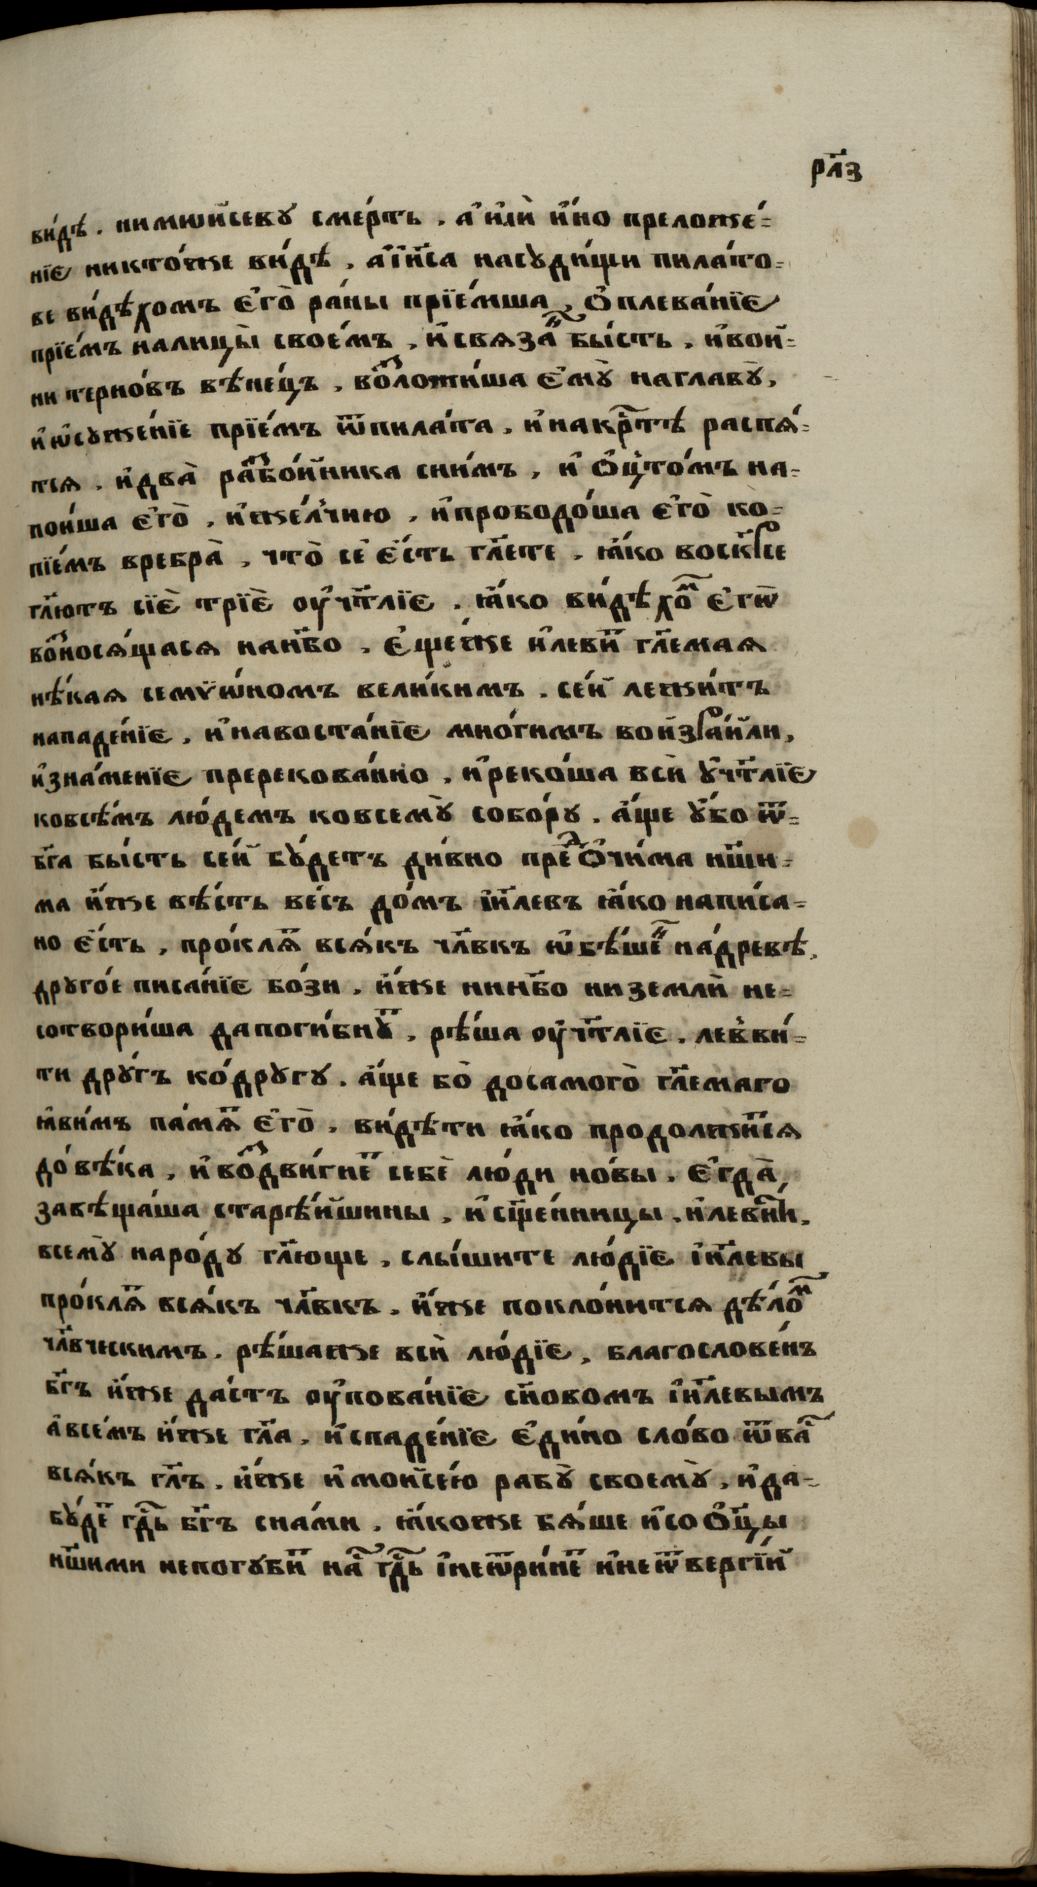 рл҃з
ви́дѣ . нимѡи҆севу сме́рть . а҆ и҆лѝ и҆́но преложе́=
нїе никто́же ви́дѣ , а҆і҆и҃са насуди́щи пилато=
ве ви́дѣхомъ є҆гѡ̀ ра́ны прїе́мша , ѻ҆плева́нїе
прїе́мъ налицы̀ свое́мъ , и҆связа́н бы́сть , и҆вои҆=
ни терно́въ вѣне́цъ , воз̾ложи́ша є҆мꙋ̀ наглавꙋ̀ ,
и҆ѡ҆сужє́нїе прїе́мъ ѿпила́та , и҆накрⷭ҇тѣ распѧ́=
тсѧ . и҆два̀ раз̾бо́и҆ника сни́мъ , и҆ ѻ҆́цтомъ на=
пои́ша є҆го̀ , и҆же́лчию , и҆прободо́ша є҆го̀ ко=
пїе́мъ вребра̀ , что̀ сѐ є҆́сть гл҃ете , ꙗ҆́ко воскр҃се
гл҃ютъ сїѐ трїѐ оу҆чт҃лїе . ꙗ҆́ко ви́дѣхом є҆гѡ̀
воз̾носѧ́щасѧ нанб҃о , є҆ще́же и҆леви́т гл҃емаѧ
нѣ́каѧ семѷѡ́номъ вели́кимъ . се́й лежи́тъ
нападе́нїе , и҆навоста́нїе мно́гимъ вои҆зра́и҆ли ,
и҆зна́менїе пререкова́нно , и҆реко́ша всѝ ᲂу҆чт҃лїе
ковсѣ́мъ лю́демъ ковсемꙋ̀ собо́ру . а҆́ще ᲂу҆́бо ѿ=
бг҃а бы́сть се́й бꙋ́детъ ди́вно пред ѻ҆чи́ма нш҃и=
ма и҆́же вѣ́сть ве́съ до́мъ і҆и҃левъ ꙗ҆́ко напи́са=
но є҆́сть , про́клѧт всѧ́къ чл҃вкъ ѡ҆бѣ́шен на́древѣ ,
друго́е писа́нїе бо́зи . и҆́же нинб҃о ни землѝ не=
сотвори́ша дапоги́бнꙋт , рѣ́ша оу҆чт҃лїе . лев̾ви́=
ти дрꙋ́гъ ко́другу . а҆́ще бо̀ досамого̀ гл҃емаго
ꙗ҆ви́мъ па́мѧт є҆го̀ . ви́дѣти ꙗ҆́ко продолжи́тсѧ
до́вѣ́ка , и҆ воз̾дви́гнет себѐ лю́ди но́вы . є҆гда̀
завѣща́ша старѣ́и҆шины , и҆ сщ҃е́нницы . и҆леви́ти .
всемꙋ̀ наро́ду гл҃юще , слы́шите лю́дїе і҆и҃левы
про́клѧт всѧ́къ чл҃вкъ . и҆́же покло́нитсѧ дѣ́лом
чл҃вчискимъ . рѣ́шаже всѝ лю́дїе , благослове́нъ
бг҃ъ и҆́же да́стъ оу҆пова́нїе сн҃овомъ і҆и҃левымъ
а҆всѣ́мъ и҆́же гл҃а , и҆спаде́нїе є҆ди́но сло́во ѿвас
всѧ́къ гл҃ъ . и҆́же и҆ мои҆се́ю рабꙋ̀ своемꙋ̀ . и҆да=
бꙋ́дет гд҃ь бг҃ъ сна́ми . ꙗ҆́коже бѧ́ше и҆ со ѻ҆ц҃ы
нш҃ими непогуби́т нас гд҃ь и҆неѿри́нет и҆неѿверги́й